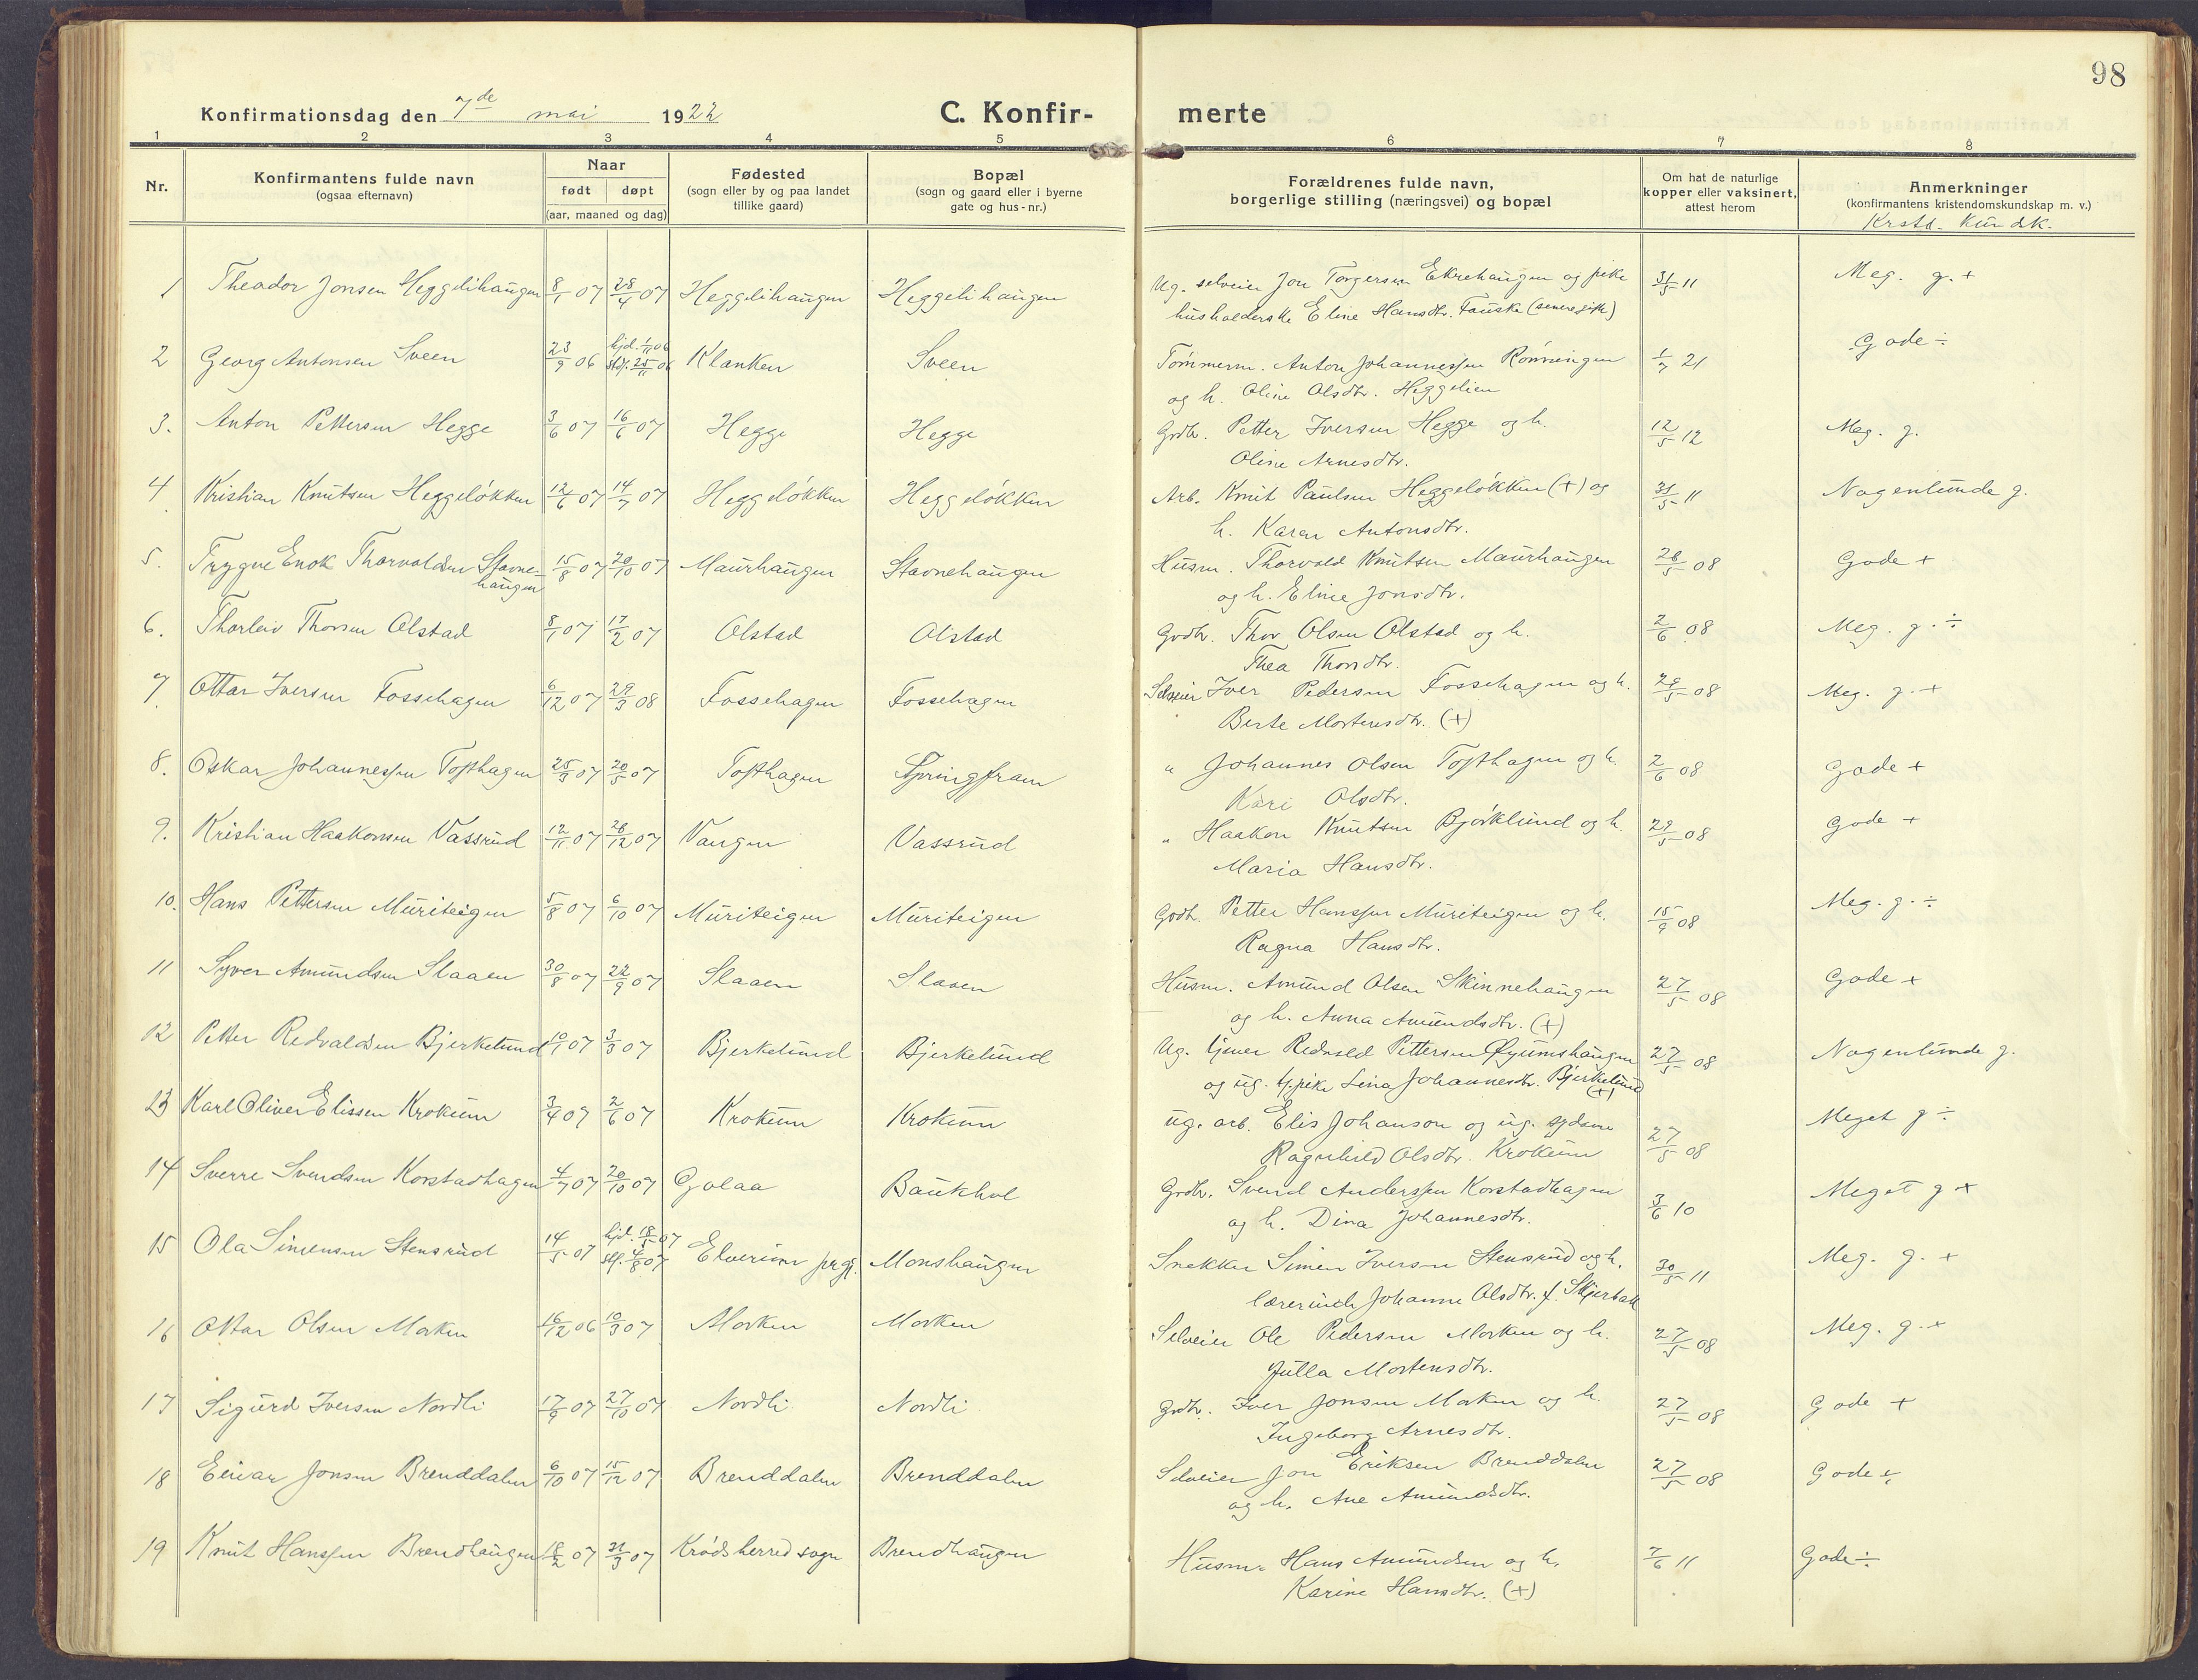 98
Konfirmationsdag den 7de mai 1922
C. Konfirmerte
1 2 3 4 5 6 7 8
Nr.
Konfirmantens fulde navn
(ogsaa efternavn)
Naar
født døpt
(aar, maaned og dag)
Fødested
(sogn eller by og paa landet
tillike gaard)
Bopæl
(sogn og gaard eller i byerne
gate og hus-nr.)
Forældrenes fulde navn,
borgerlige stilling (næringsvei) og bopæl
Om hat de naturlige
kopper eller vaksinert,
attest herom
Anmerkninger
(konfirmantens kristendomskundskap m. v.)
Krstd. kundsk.
1 Theodor Jonsen Heggelihaugen 8/1 07 28/4 07 Heggelihaugen Heggelihaugen Ug. selveier Jon Torgersen Ekrehaugen og pike 31/5 11 Meg. g. +
husholderske Eline Hansdtr. Fauske (senere gift)
2 Georg Antonsen Sveen 23/9 06 hjd. 1/11 06 Klanken Sveen Tømmerm. Anton Johannessen Rønningen 1/7 21 Gode ÷
stf. 25/11 06 og h. Oline Olsdtr. Heggelien
3. Anton Pettersen Hegge 3/6 07 16/6 07 Hegge Hegge Grdbr. Petter Iversen Hegge og h. 12/5 12 Meg. g.
Oline Arnesdtr.
4 Kristian Knutsen Heggeløkken 12/6 07 14/7 07 Heggeløkken Heggeløkken Arb. Knut Paulsen Heggeløkken (+) og 31/5 11 Nogenlunde g.
h. Karen Antonsdtr.
5. Trygve Enok Thorvaldsen Stavne- 15/8 07 20/10 07 Maurhaugen Stavnehaugen Husm. Thorvald Knutsen Maurhaugen 26/5 08 Gode +
haugen og h. Eline Jonsdtr.
6. Thorleiv Thorsen Olstad 8/1 07 17/2 07 Olstad Olstad Grdbr. Thor Olsen Olstad og h. 2/6 08 Meg. g. ÷
Thea Thorsdtr.
7 Ottar Iversen Fossehagen 6/12 07 29/3 08 Fossehagen Fossehagen Selveier Iver Pedersen Fossehagen og h. 29/5 08 Meg. g. +
Berte Mortensdtr. (+)
8. Oskar Johannessen Tofthagen 25/3 07 20/5 07 Tofthagen Springfram " Johannes Olsen Tofthagen og h. 2/6 08 Gode +
Kari Olsdtr.
9. Kristian Haakonsen Vassrud 12/11 07 26/12 07 Vangen Vassrud " Haakon Knutsen Bjørklund og h. 29/5 08 Gode +
Maria Hansdtr.
10. Hans Pettersen Muriteigen 5/8 07 6/10 07 Muriteigen Muriteigen Grdb. Petter Hanssen Muriteigen og h. 15/9 08 Meg. g. ÷
Ragna Hansdtr.
11 Syver Amundsen Slaaen 30/8 07 22/9 07 Slaaen Slaaen Husm. Amund Olsen Skinnehaugen 27/5 08 Gode +
og h. Anna Amundsdtr. (+)
12 Petter Redvaldsen Bjerkelund 10/1 07 3/3 07 Bjerkelund Bjerkelund Ug. tjener Redvald Pettersen Øyumshaugen 27/5 08 Nogenlunde g.
og ug. tj.pike Lina Johannesdtr. Bjerkelund (+)
13 Karl Oliver Elissen Krokum 3/4 07 2/6 07 Krokum Krokum Ug. arb. Elis Johanson og ug. sydame 27/5 08 Meget g ÷
Ragnhild Olsdtr. Krokum
14 Sverre Svendsen Korstadhagen 4/7 07 20/10 07 Golaa Baukhol Grdbr. Svend Anderssen Korstadhagen 3/6 10 Meget g +
og h. Dina Johannesdtr.
15 Ola Simensen Stensrud 14/5 07 hjd. 18/5 07 Elverum prgj. Monshaugen Snekker Simen Iversen Stensrud og h. 30/5 11 Meg. g. +
stf. 4/8 07 lærerinde Johanne Olsdtr. f. Skjerbak
16 Ottar Olsen Morken 16/12 06 10/3 07 Morken Morken Selveier Ole Pedersen Morken og h. 27/5 08 Meg. g. +
Julla Mortensdtr.
17 Sigurd Iversen Nordli 17/9 07 27/10 07 Nordli Nordli Grdbr. Iver Jonsen Morken og h. 27/5 08 Gode +
Ingeborg Arnesdtr.
18 Einar Jonsen Brenddalen 6/10 07 15/12 07 Brenddalen Brenddalen Selveier Jon Eriksen Brenddalen 27/5 08 Gode +
og h. Ane Amundsdtr.
19 Knut Hanssen Brendhaugen 18/2 07 31/3 07 Krødsherred sogn Brendhaugen Husm. Hans Amundsen og h. 7/6 11 Gode ÷
Karine Hansdtr. (+)